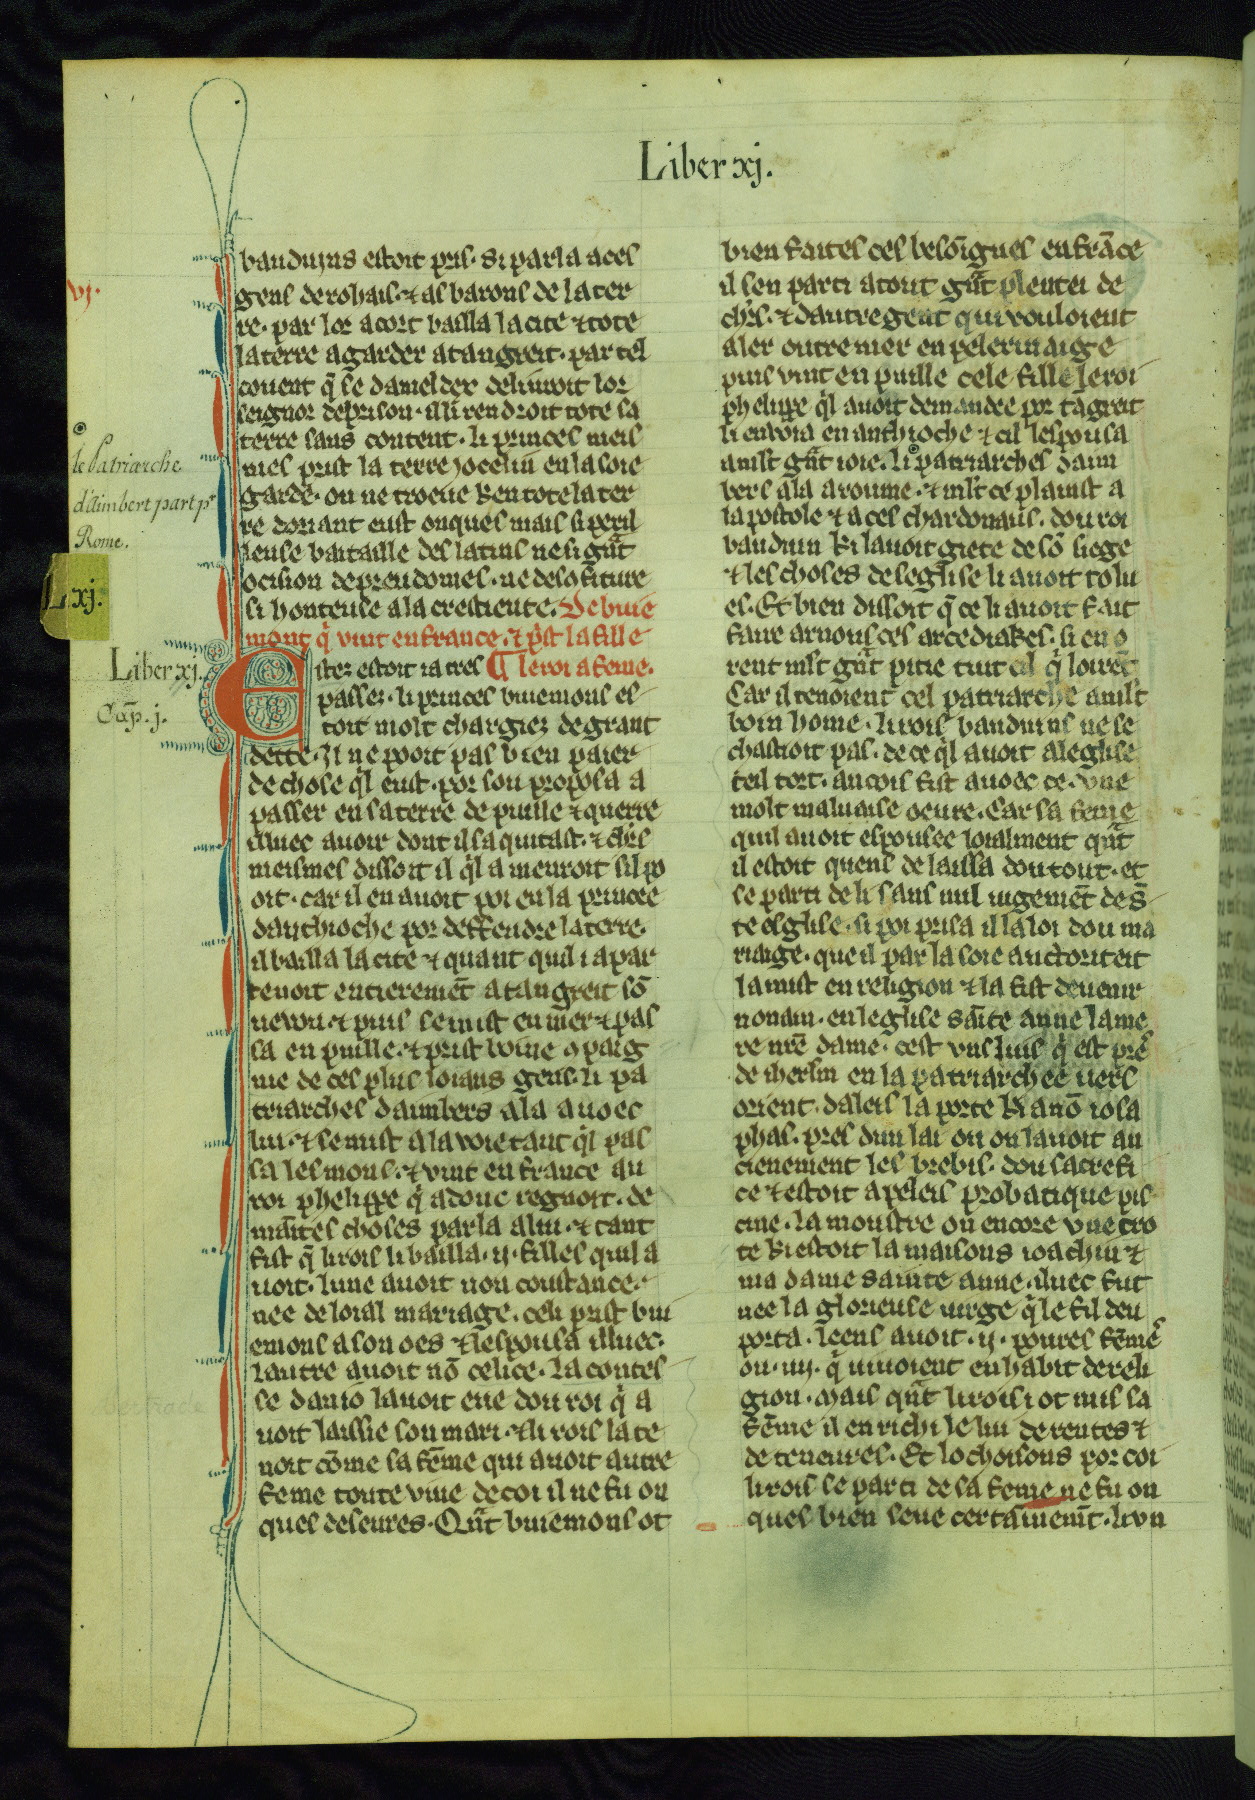 Liber xj.
vj.
le Patriarche
d'aimbert part pr
Rome.
L xj.
Liber xj.
Cap̄. j.
bauduins estoit pris. Si parla a ces
gens de rohais. ⁊ as barons de la ter
re. par lor acort bailla la cite ⁊ tote
la terre a garder a tangreit. par tel
couent q̄ se dameldex deliuroit lor
seignor de prison. il li rendroit tote sa
terre sans content. li princes meis
mes prist la terre iocelin en la soie
garde. on ne troeue ken tote la ter
re doriant eust onques mais si peril
leuse bartaille des latins ne si gñt
ocision de preudomes. ne desofiture
si honteuse a la crestiente. De buie
mont q̇ vint en france. ⁊ p̄st la fille
Estez estoit ia tres le roi a feme.
passez. li princes buiemons es
toit molt chargiez de grant
dette. Il ne pooit pas bien paier
de chose q̄l eust. por son proposa a
passer en sa terre de puille ⁊ querre
illuec auoir dont il saquitast. ⁊ chr̄s
meismes dissoit il q̄l amenroit sil po
oit. car il en auoit poi en la princee
danthioche por deffendre la terre.
il bailla la cite ⁊ quant quil i apar
tenoit entieremēt a tangreit sō
neuou. ⁊ puis se mist en mer ⁊ pas
sa en puille. ⁊ prist boine ꝯpaig
nie de ces plus loians gens. li pa
triarches daimbers ala auoec
lui. ⁊ se mist a la voie tant q̄l pas
sa les mons. ⁊ vint en france au
roi phelippe q̇ adonc regnoit. de
maītes choses parla a lui. ⁊ tant
fist q̄ li rois li bailla .ij. filles quil a
uoit. lune auoit non constance.
nee de loial mariage. celi prist bui
emons a son oes ⁊ lespousa illuec.
lautre auoit nō celice. la contes
se daniō lauoit eue dou roi q̇ a
uoit laissie son mari. ⁊ li rois la te
noit cōme sa fēme qui auoit autre
feme toute viue de coi il ne fu on
ques deseures. Qn̄t buiemons ot
bien faites ces besoīgnes en frāce
il sen parti a tout gñt plentei de
chr̄s. ⁊ dautre gent qui vouloient
aler outre mer en pelerinaige
puis vint en puille cele fille le roi
phelippe q̄l auoit demandee por tāgreit
li enuoia en anthioche ⁊ cil lespousa
a mlt gñt ioie. li patriarches daim
bers ala a roume. ⁊ mlt ce plainst a
lapostole ⁊ a ces chardonaus. dou roi
bauduin ki lauoit giete de sō siege
⁊ les choses de leglise li auoit tolu
es. Et bien dissoit q̄ ce li auoit fait
faire arnous ces arcediakes. si en o
rent mlt gñt pitie tuit cil q̇ loirēt
Car il tenoient cel patriarche a mlt
boin home. li rois bauduins ne se
chastioit pas. de ce q̄l auoit a leglise
teil tort. ancois fist auoec ce. vne
molt maluaise oeure. Car sa feme
quil auoit espousee loialment qñt
il estoit quens de laissa dou tout. et
se parti de li sans nul iugemēt de s̄
te esglise. si poi prisa il la loi dou ma
riaige. que il par la soie auctoriteit
la mist en religion ⁊ la fist deuenir
nonain. en leglise saīte anne la me
re nr̄e dame. cest vns luis q̇ est pres
de iherlm en la patriarchee uers
orient. daleis la porte ki a nō iosa
phas. pres dun lai ou on lauoit an
cienement les brebis. dou sacrefi
ce ⁊ estoit apeleis probatique pis
cine. la moustre on encore vne cro
te ki estoit la maisons ioachin ⁊
ma dame sainte anne. illuec fut
nee la glorieuse uirge q̇ le fil deu
porta. leens auoit .ij. poures fēmes
ou .iij. q̇ uiuoient en habit de reli
gion. Mais qñt li rois i ot mis sa
fēme il enrichi le liu de rentes ⁊
de teneures. Et lochoisons por coi
li rois se parti de sa feme ne fu on
ques bien seue certainemt̄. li vn